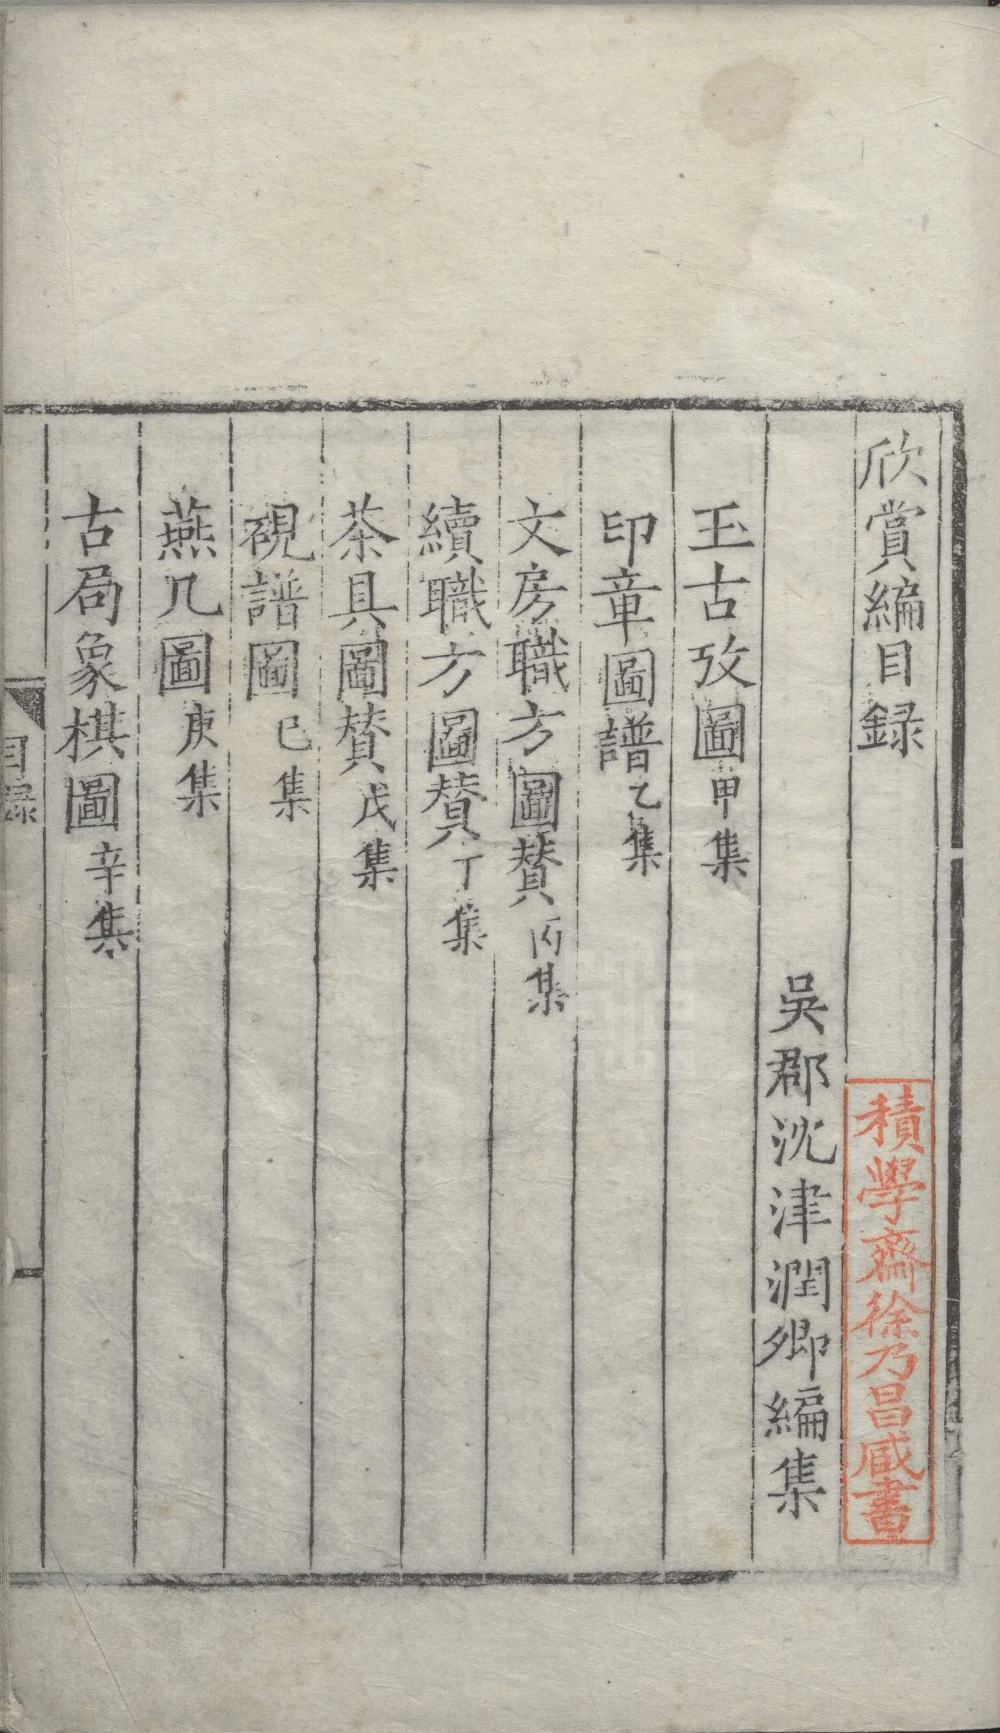 欣賞編目録
積學齋徐乃昌臧書
吳郡沈津潤卿編集
玉古攷圖甲集
印章圖譜乙集
文房職方圖賛丙集
續職方圖賛丁集
茶具圖賛戊集
硯譜圖己集
燕几圖庚集
古局象棋圖辛集
目録